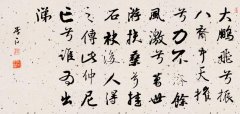 大鵬飛兮振
八裔中天摧
兮力不濟餘
風激兮萬世
游扶桑兮挂
石袂後人得
之傳此仲尼
亡兮誰為出
涕